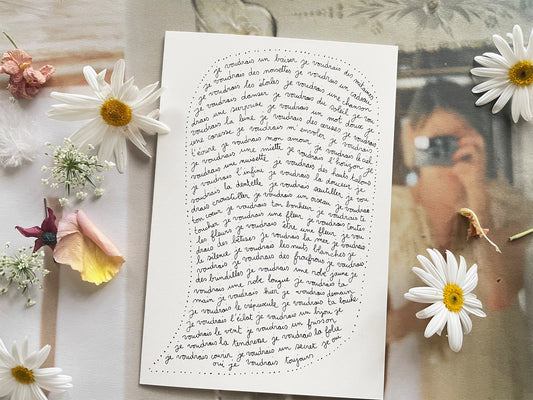 je voudrais un baiser je voudrais des mûres
je voudrais des noisettes je voudrais un cadeau
je voudrais les étoiles je voudrais une chanson
je voudrais danser je voudrais du soleil je vou
drais une surprise je voudrais un mot doux je
voudrais la lune je voudrais des cerises je voudrais
une caresse je voudrais m'envoler je voudrais
t'écrire je voudrais mon amour je voudrais le ciel
je voudrais une miette je voudrais l'horizon je
voudrais une noisette je voudrais des hauts talons
je voudrais l'infini je voudrais la douceur je
voudrais la dentelle je voudrais cueillir je vou
drais croustiller je voudrais un oiseau je voudrais
ton cœur je voudrais ton bonheur je voudrais te
toucher je voudrais une fleur je voudrais toutes
les fleurs je voudrais être une fleur je vou
drais des bêtises je voudrais la mer je voudrais
le silence je voudrais les nuits blanches je
voudrais je voudrais des froufrous je voudrais
des brindilles je voudrais une robe jaune je
voudrais une robe longue je voudrais ta
main je voudrais hier je voudrais demain
je voudrais le crépuscule je voudrais ta bouche
je voudrais l'éclat je voudrais un bijou je
voudrais le vent je voudrais un frisson
je voudrais la tendresse je voudrais la folie
je voudrais courir je voudrais un secret je oui
oui je voudrais toujours